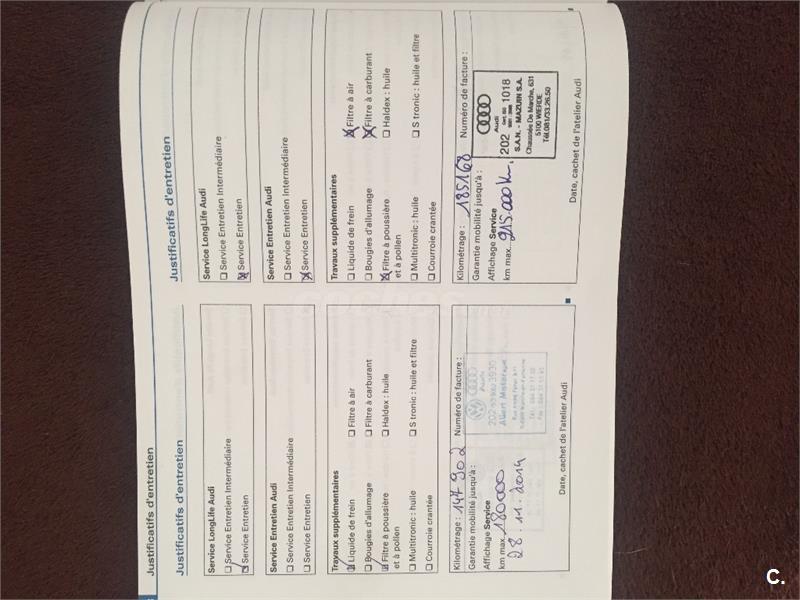 Justificatifs d'entretien
Justificatifs d'entretien
Service LongLife Audi
Service Entretien Intermédiaire
Service Entretien
Service Entretien Audi
Service Entretien Intermédiaire
Service Entretien
Travaux supplémentaires
Liquide de frein
Filtre à air
Bougies d'allumage
Filtre à carburant
Filtre à poussière
et à pollen
Haldex : huile
Multitronic : huile
S tronic : huile et filtre
Courroie crantée
Kilométrage : 147 902
Numéro de facture :
Garantie mobilité jusqu'à :
Affichage Service
km max. 180000
28.11.2014
Date, cachet de l'atelier Audi
Justificatifs d'entretien
Service LongLife Audi
Service Entretien Intermédiaire
Service Entretien
Service Entretien Audi
Service Entretien Intermédiaire
Service Entretien
Travaux supplémentaires
Liquide de frein
Filtre à air
Bougies d'allumage
Filtre à carburant
Filtre à poussière
et à pollen
Haldex : huile
Multitronic : huile
S tronic : huile et filtre
Courroie crantée
Kilométrage : 185168
Numéro de facture :
Garantie mobilité jusqu'à :
Affichage Service
km max. 215.000 km.
Audi
202 1018
S.A.N. - MAZUIN S.A.
Chaussée De Marche, 631
5100 WIERDE
Tél.081/33.26.50
Date, cachet de l'atelier Audi
C.